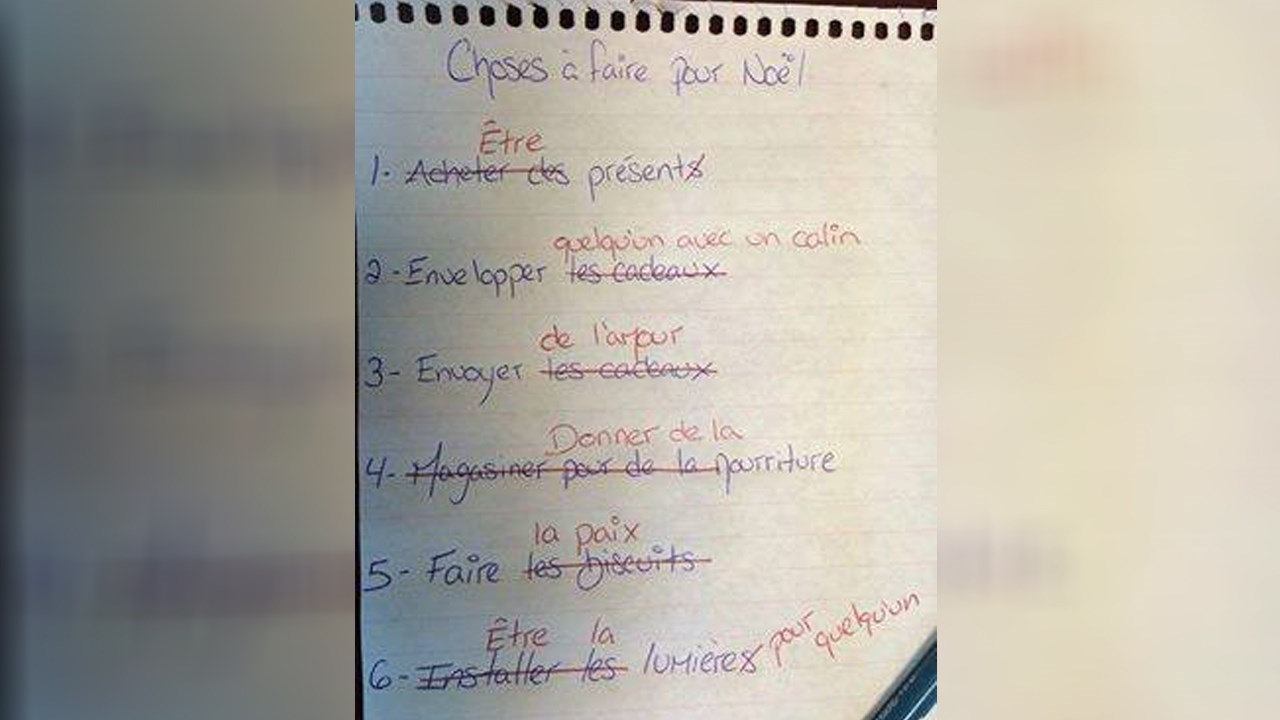 Choses à faire pour Noël
Être
1- Acheter des présents
quelqu'un avec un calin
2- Envelopper les cadeaux
de l'amour
3- Envoyer les cadeaux
Donner de la
4- Magasiner pour de la nourriture
la paix
5- Faire les biscuits
Être la
6- Installer les lumières pour quelqu'un